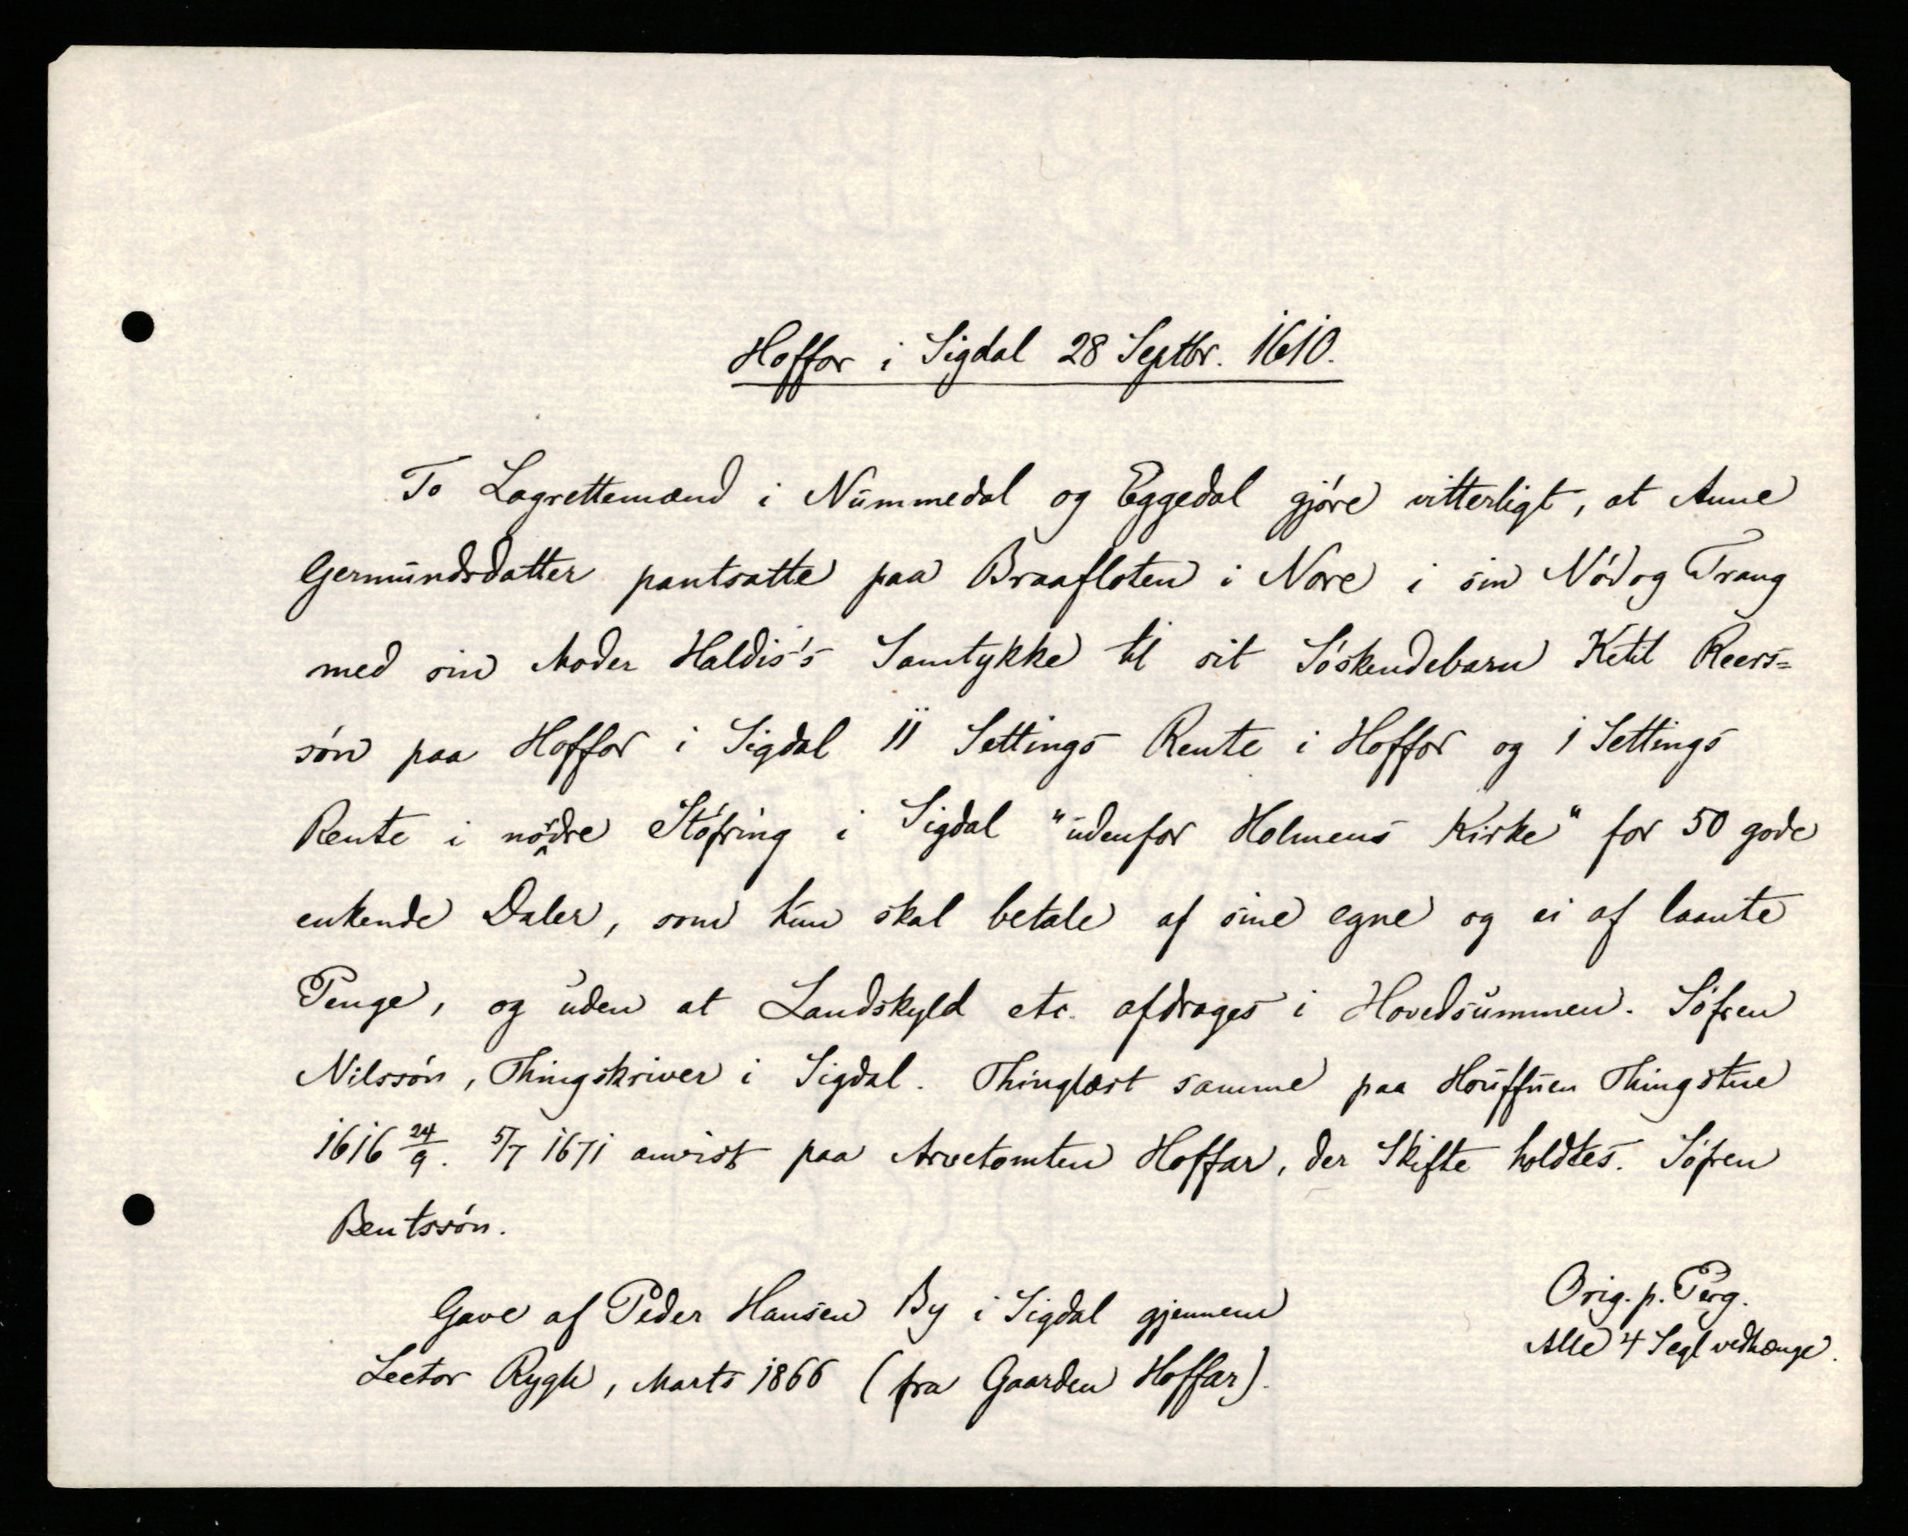 Hoffor i Sigdal 28 Septbr. 1610.
To Lagrettemænd i Nummedal og Eggedal gjöre vitterligt, at Anne
Germundsdatter pantsatte paa Braafloten i Nore i sin Nöd og Trang
med sin Moder Haldis's Samtykke til sit Söskendebarn Ketil Reers=
sön paa Hoffor i Sigdal II Settings Rente i Hoffor og 1 Settings
Rente i nördre Stöfring i Sigdal "udenfor Holmens Kirke" for 50 gode
enkende Daler, som hun skal betale af sine egne og ei af laante
Penge, og uden at Landskyld etc. afdrages i Hovedsummen. Söfren
Nilssön, Thingskriver i Sigdal. Thinglæst samme paa Houffuen Thingstue
1616 24/9. 5/7 1671 anvist paa Arvetomten Hoffar, der Skifte holdtes. Söfren
Bentssön.
Gave af Peder Hansen By i Sigdal gjennem
Lector Rygh, Marts 1866 (fra Gaarden Hoffar).
Orig. p. Perg.
Alle 4 Segl vedhænge.